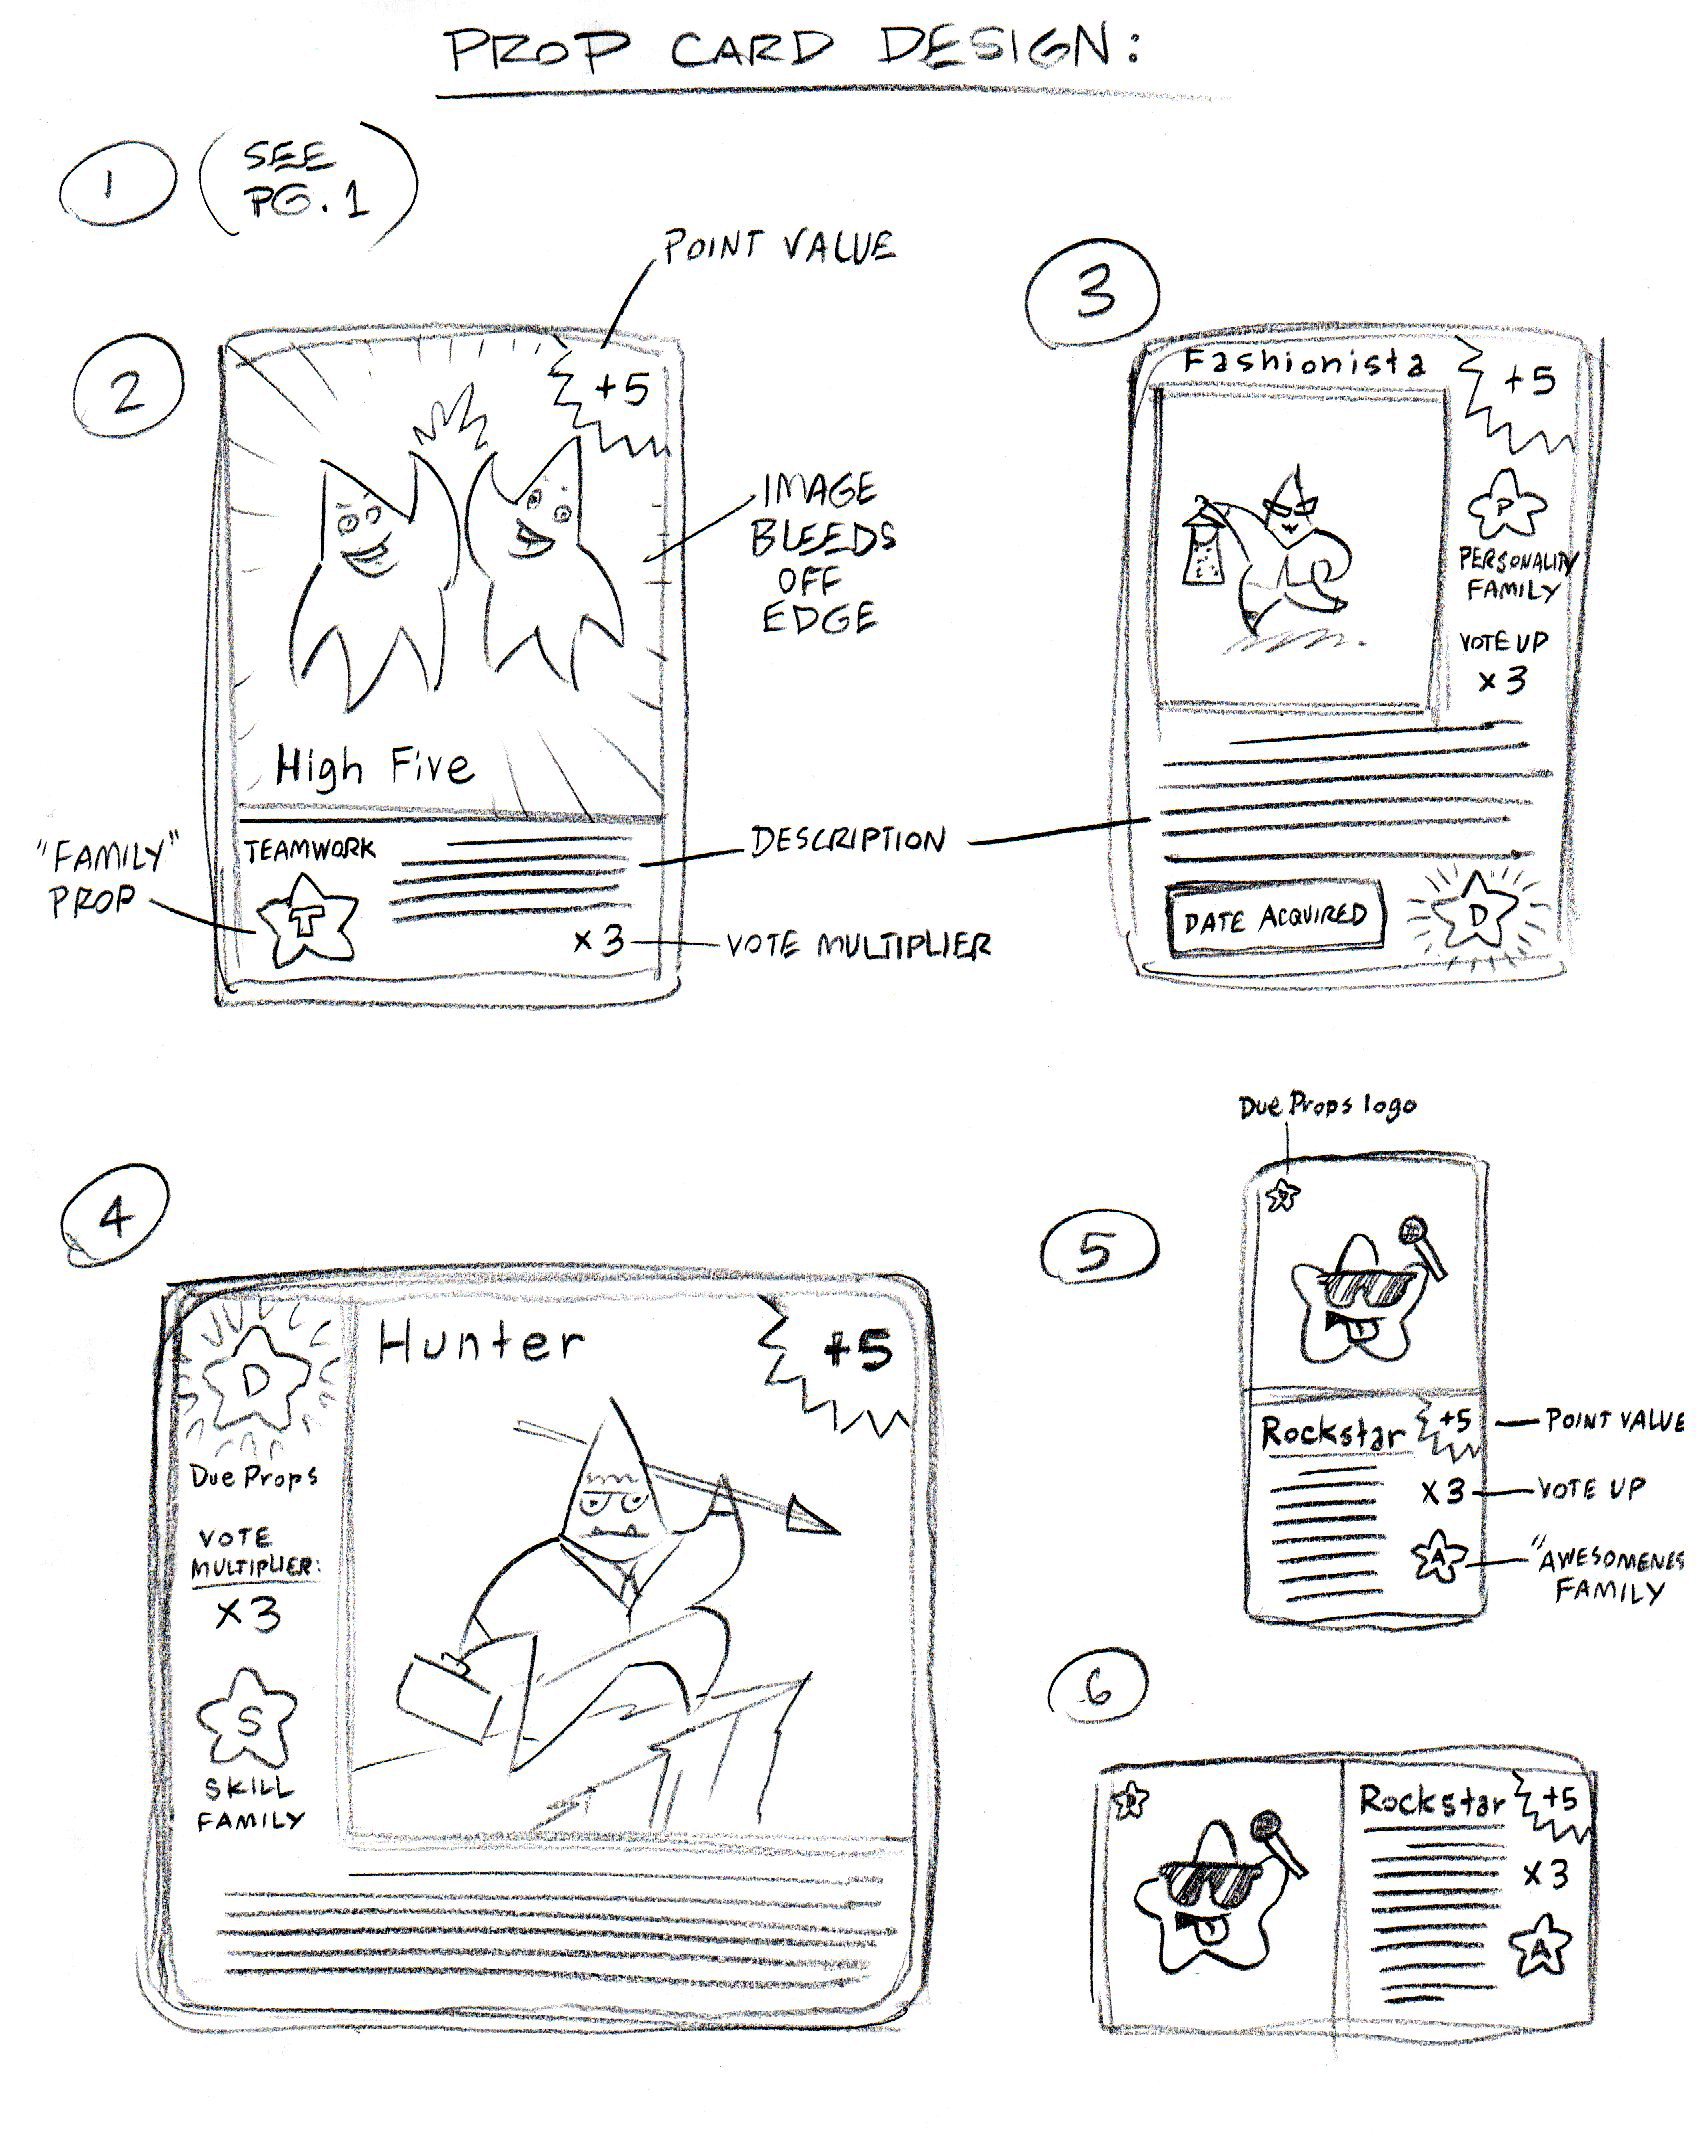 PROP CARD DESIGN:
1
(SEE
PG. 1)
POINT VALUE
2
+5
IMAGE
BLEEDS
OFF
EDGE
High Five
TEAMWORK
"FAMILY"
PROP
T
DESCRIPTION
x3
VOTE MULTIPLIER
3
Fashionista
+5
P
PERSONALITY
FAMILY
VOTE UP
x3
DATE ACQUIRED
D
4
D
Due Props
VOTE
MULTIPLIER:
x3
S
SKILL
FAMILY
Hunter
+5
5
Due Props logo
D
Rockstar
+5
POINT VALUE
x3
VOTE UP
A
"AWESOMENES
FAMILY
6
D
Rockstar
+5
x3
A